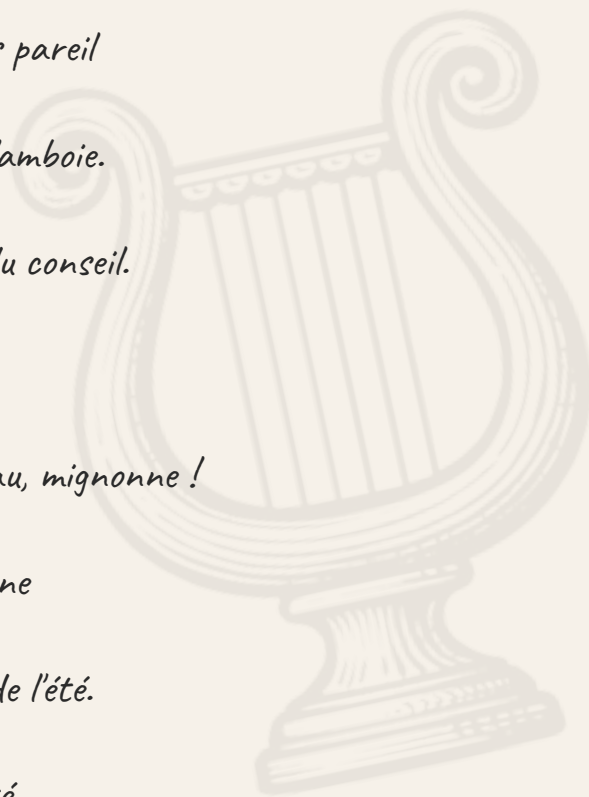 pareil
amboie.
u conseil.
au, mignonne !
ne
de l'été.
é